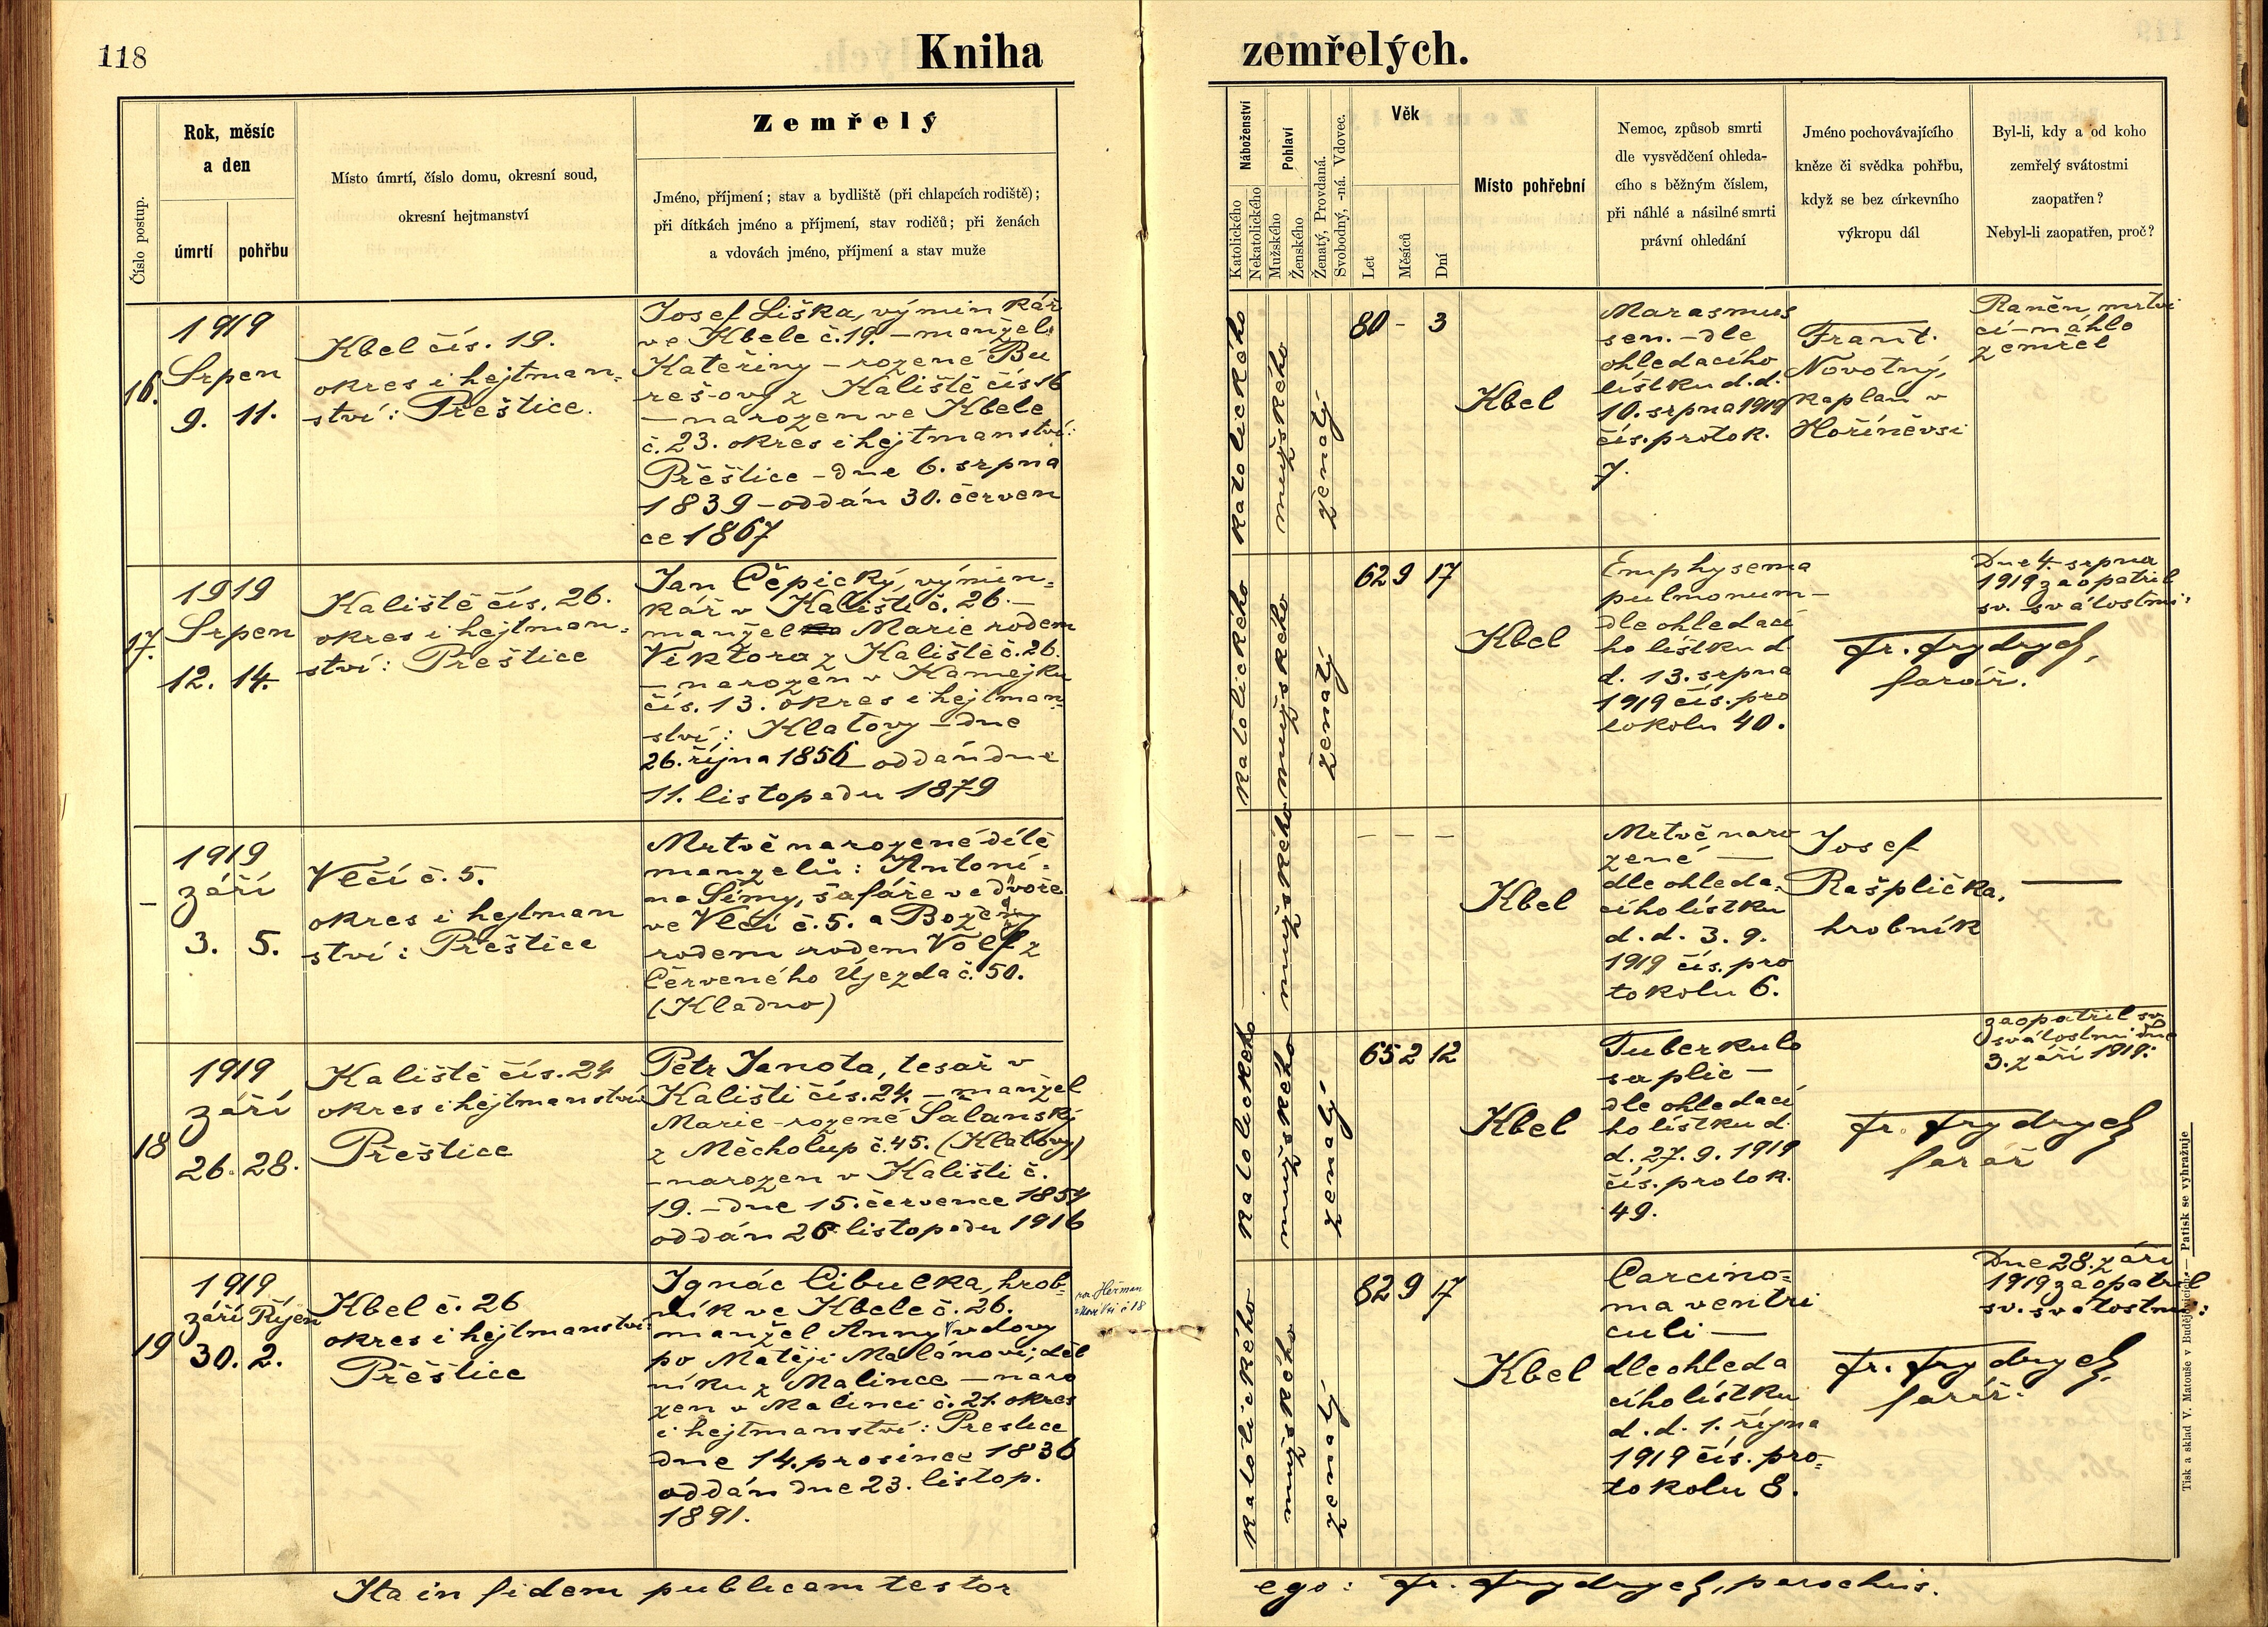 118
Kniha zemřelých.
Číslo postup.
Rok, měsíc
a den
úmrtí
pohřbu
Místo úmrtí, číslo domu, okresní soud,
okresní hejtmanství
Zemřelý
Jméno, příjmení; stav a bydliště (při chlapcích rodiště);
při dítkách jméno a příjmení, stav rodičů; při ženách
a vdovách jméno, příjmení a stav muže
Náboženství
Katolického
Nekatolického
Pohlaví
Mužského
Ženského
Ženatý, Provdaná.
Svobodný, -ná. Vdovec.
Věk
Let
Měsíců
Dní
Místo pohřební
Nemoc, způsob smrti
dle vysvědčení ohleda-
cího s běžným číslem,
při náhlé a násilné smrti
právní ohledání
Jméno pochovávajícího
kněze či svědka pohřbu,
když se bez církevního
výkropu dál
Byl-li, kdy a od koho
zemřelý svátostmi
zaopatřen?
Nebyl-li zaopatřen, proč?
16.
1919
Srpen
9. 11.
Kbel čís. 19.
okres i hejtman=
ství: Přeštice.
Josef Liška, výminkář
ve Kbele č. 19. – manžel
Kateřiny – rozené Bu
reš-ovy z Kaliště čís 16
– narozen ve Kbele
č. 23. okres i hejtmanství:
Přeštice – dne 6. srpna
1839 – oddán 30. červen
ce 1867
katolického
mužského
ženatý
80 – 3
Kbel
Marasmus
sen. – dle
ohledacího
lístku d.d.
10. srpna 1919
čís. protok.
7.
Frant.
Novotný,
kaplan v
Hoříněvsi
Raněn mrtvi
cí – náhlo
zemřel
17.
1919
Srpen
12. 14.
Kaliště čís. 26.
okres i hejtman=
ství: Přeštice
Jan Čěpický, výmin=
kář v Kališti č. 26. –
manžel Marie rodem
Viktora z Kaliště č. 26.
– narozen v Kamejku
čís. 13. okres i hejtman=
ství: Klatovy – dne
26. října 1856 oddán dne
11. listopadu 1879
katolického
mužského
ženatý
62 9 17
Kbel
Emphysema
pulmonum –
dle ohledací
ho lístku d
d. 13. srpna
1919 čís. pro
tokolu 40.
Fr. Frydrych,
farář.
Dne 4. srpna
1919 zaopatřil
sv. svátostmi:
–
1919
září
3. 5.
Vlčí č. 5.
okres i hejtman
ství: Přeštice
Mrtvě narozené dítě
manzelů: Antoní=
na Šímy, šafáře ve dvoře
ve Vlčí č. 5. a Boženy
rodem rodem Volf z
Červeného Újezda č. 50.
(Kladno)
mužského
– – –
Kbel
Mrtvě naro
zené –
dle ohleda=
cího lístku
d.d. 3. 9.
1919 čís. pro
tokolu 6.
Josef
Rašplička,
hrobník
—
18
1919
září
26. 28.
Kaliště čís. 24
okres i hejtmanství
Přeštice
Petr Janota, tesař v
Kališti čís. 24. – manžel
Marie – rozené Šalanský
z Měcholup č. 45. (Klatovy)
– narozen v Kališti č.
19. – dne 15. července 1854
oddán 26 listopadu 1916
katolického
mužského
ženatý
65 2 12
Kbel
Tuberkulo
sa plic –
dle ohledací
ho lístku d.
d. 27. 9. 1919
čís. protok.
49.
Fr. Frydrych
farář
zaopatřil sv.
svátostmi dne
3. září 1919:
19
1919
září Říjen
30. 2.
Kbel č. 26
okres i hejtmanství:
Přeštice
Ignác Cibulka, hrob=
ník ve Kbele č. 26.
manžel Anny vdovy
po Matěji Malánovi, děl
níku z Malince – naro
zen v Malinci č. 21. okres
i hejtmanství: Prestice
dne 14. prosince 1836
oddán dne 23. listop.
1891.
katolického
mužského
ženatý
82 9 17
Kbel
Carcino=
ma ventri
culi –
dle ohleda
cího lístku
d.d. 1. října
1919 čís. pro=
tokolu 8.
Fr. Frydrych,
farář.
Dne 28. září
1919 zaopatřil
sv. svátostmi:
Ita in fidem publicam testor
ego: Fr. Frydrych, parochus.
Tisk a sklad V. Matouše v Budějovicích. — Patisk se vyhražuje